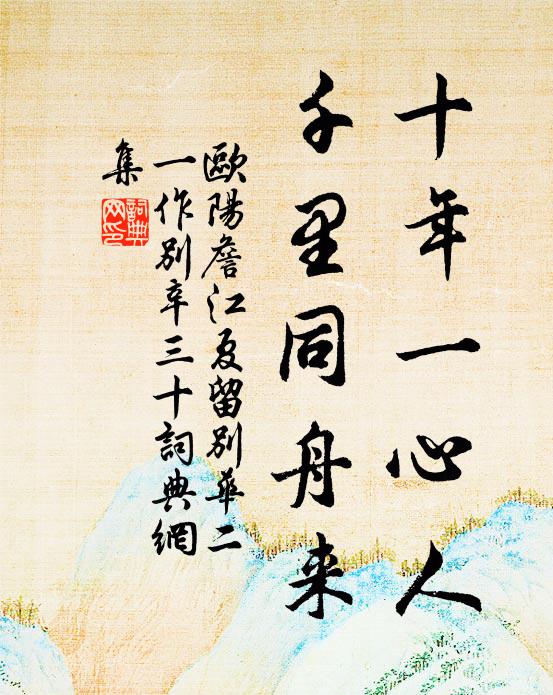 十年一心人
千里同舟来
歐陽詹江夏留別華二
一作別辛三十詞典網
集
詞典
网印